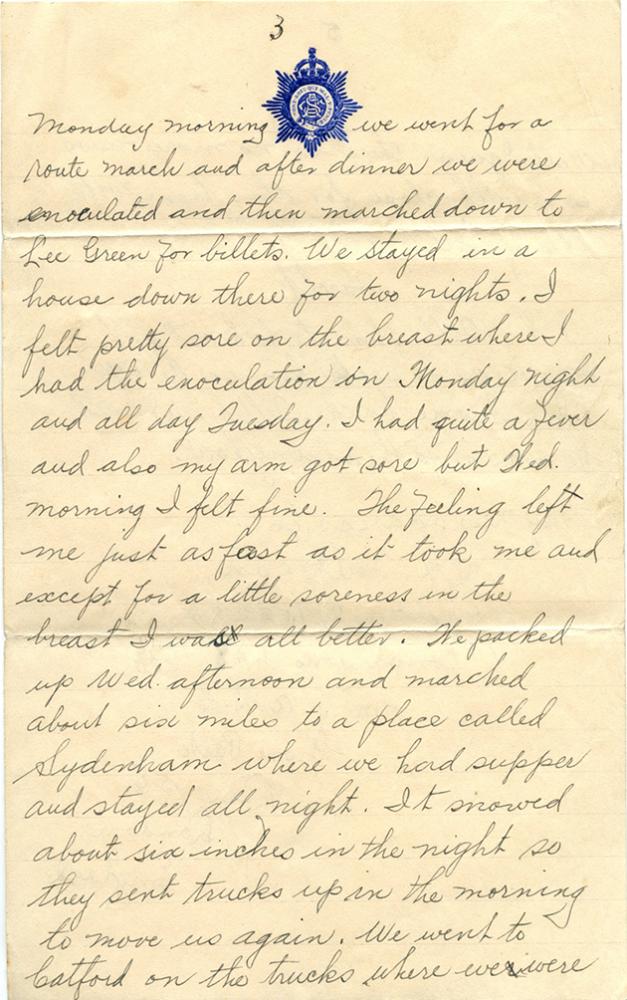 3
Monday morning we went for a
route march and after dinner we were
enoculated and then marched down to
Lee Green for billets. We stayed in a
house down there for two nights. I
felt pretty sore on the breast where I
had the enoculation on Monday night
and all day Tuesday. I had quite a fever
and also my arm got sore but Wed.
morning I felt fine. The feeling left
me just as fast as it took me and
except for a little soreness in the
breast I was all better. We packed
up Wed. afternoon and marched
about six miles to a place called
Sydenham where we had supper
and stayed all night. It snowed
about six inches in the night so
they sent trucks up in the morning
to move us again. We went to
Catford on the trucks where we were